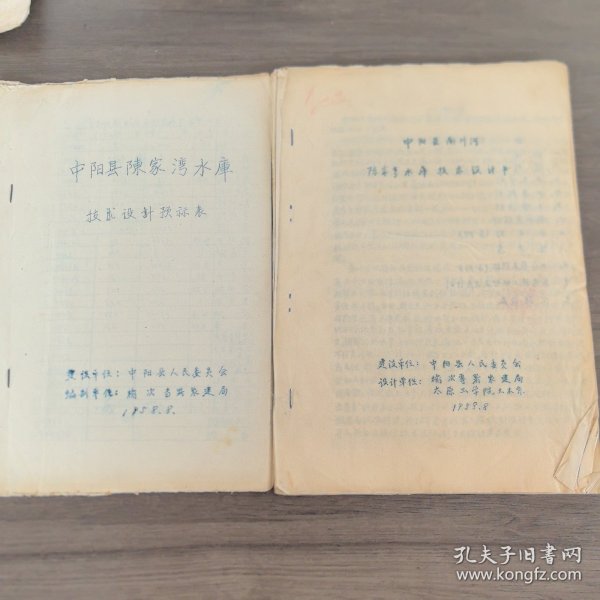 中阳县陳家湾水庫
技术设计预标表
建设单位：中阳县人民委员会
编制单位：榆次专署农建局
1958.8.
中阳县南川河
陈家湾水库技术设计书
建设单位：中阳县人民委员会
设计单位：榆次专署农建局
太原工学院土木系
1958.8
孔夫子旧书网
www.kongfz.com